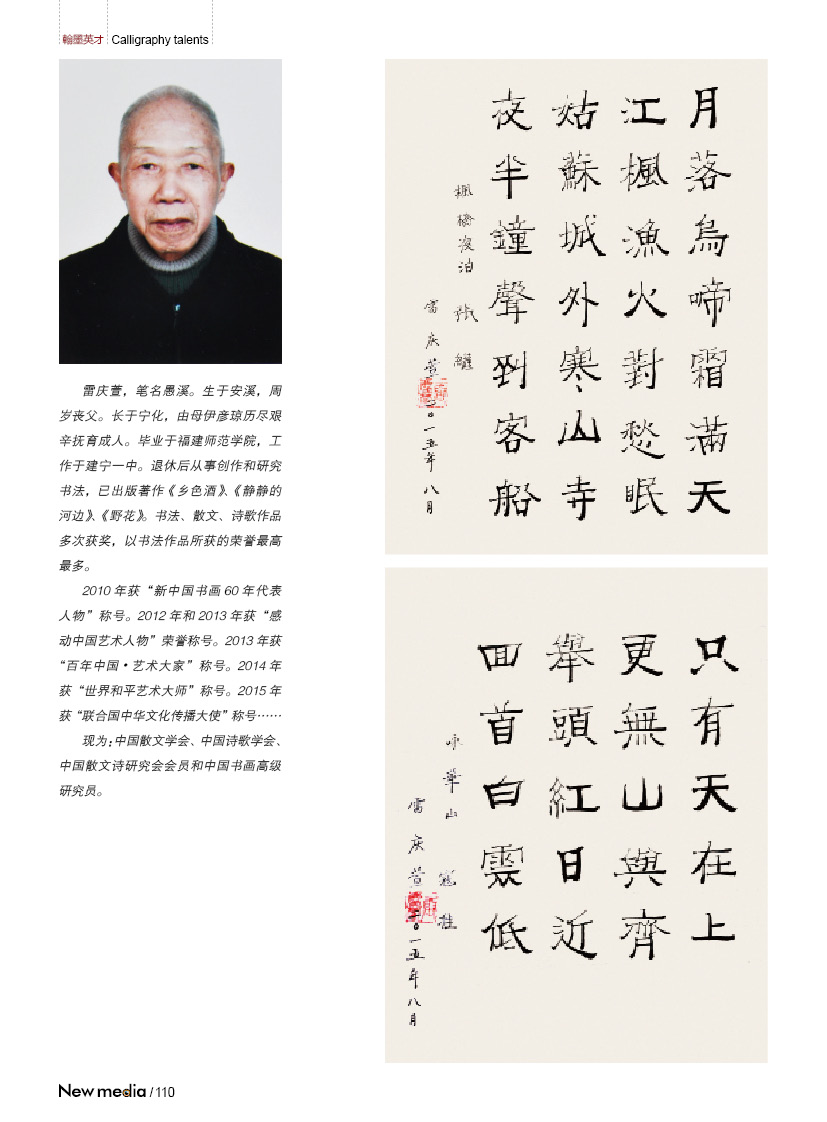 翰墨英才 Calligraphy talents
雷庆萱，笔名愚溪。生于安溪，周
岁丧父。长于宁化，由母伊彦琼历尽艰
辛抚育成人。毕业于福建师范学院，工
作于建宁一中。退休后从事创作和研究
书法，已出版著作《乡色酒》、《静静的
河边》、《野花》。书法、散文、诗歌作品
多次获奖，以书法作品所获的荣誉最高
最多。
2010 年获“新中国书画 60 年代表
人物”称号。2012 年和 2013 年获“感
动中国艺术人物”荣誉称号。2013 年获
“百年中国·艺术大家”称号。2014 年
获“世界和平艺术大师”称号。2015 年
获“联合国中华文化传播大使”称号……
现为：中国散文学会、中国诗歌学会、
中国散文诗研究会会员和中国书画高级
研究员。
月落烏啼霜滿天
江楓漁火對愁眠
姑蘇城外寒山寺
夜半鐘聲到客船
楓橋夜泊 张繼
雷庆萱
二0一五年八月
只有天在上
更無山與齊
舉頭紅日近
回首白雲低
咏華山 寇準
雷庆萱
二0一五年八月
New media / 110